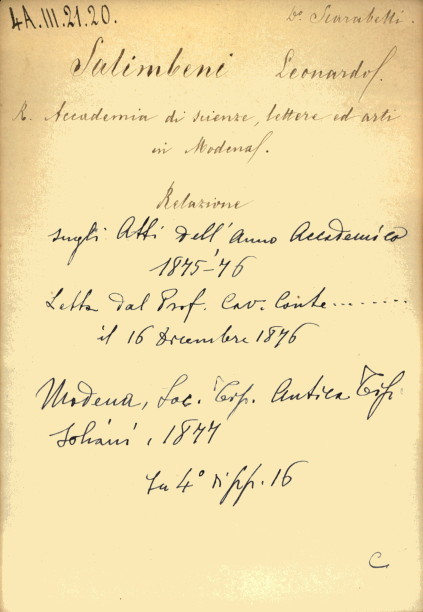 4A.III.21.20.
Dr. Scarabelli.
Salimbeni Leonardo.
R. Accademia di scienze, lettere ed arti
in Modena.
Relazione
sugli Atti dell'Anno Accademico
1875-76
Letta dal Prof. Cav. Conte........
il 16 Dicembre 1876
Modena, Soc. Tip. Antica Tip.
Soliani, 1877
In 4° di pp. 16
C